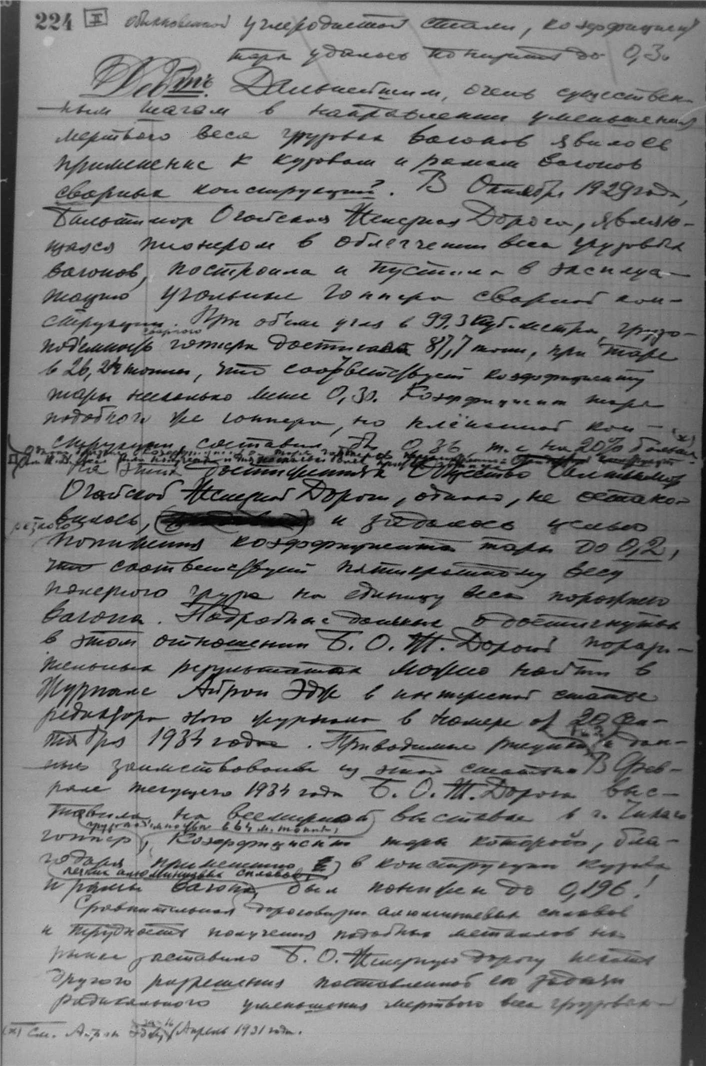 224 II обыкновенной углеродистой стали, коэффициент
тары удалось понизить до 0,3.
Дальнейшим, очень существен-
ным шагом в направлении уменьшения
мертвого веса грузовых вагонов явилось
применение к кузовам и рамам вагонов
сварных конструкций. В Октябре 1929 года,
Бальтимор Огайская Железная Дорога, являю-
щаяся пионером в облегчении веса грузовых
вагонов, построила и пустила в эксплуа-
тацию угольные гоппера сварной кон-
струкции. При объеме угля в 99.3 куб. метра, грузо-
подъемность гоппера достигала 87,7 тонн, при таре
в 26,24 тонны, что соответствует коэффициенту
тары несколько менее 0,3. Коэффициент тары
подобного же гоппера, но клёпанной кон- (х)
струкции составил бы 0,36 т.е. на 20% больше.
На этих достижениях Общество Балтимор
Огайской Железной Дороги, однако, не остано-
вилось, и задалось целью
понижения коэффициента тары до 0,2,
что соответствует пятикратному весу
полезного груза на единицу веса порожнего
вагона. Подробные данные о достигнутых
в этом отношении Б. О. Ж. Дорогой порази-
тельных результатах можно найти в
Журнале Айрон Эдж в интересной статье
редактора этого журнала в номере от 20 Сен-
тября 1934 года. Приводимые рисунки и дан-
ные заимствованы из этой статьи. В Фев-
рале текущего 1934 года Б. О. Ж. Дорога выс-
тавила на всемирной выставке в г. Чикаго
грузоподъемностью в 64 м. тонны,
гоппер, коэффициент тары которого, бла-
годаря применению в конструкции кузова
легких алюминиевых сплавов
и рамы вагона был понижен до 0,196!
Сравнительная дороговизна алюминиевых сплавов
и трудность получения подобных металлов на
рынке заставило Б. О. Железную дорогу искать
другого разрешения поставленной ею задачи
радикального уменьшения мертвого веса грузовых
(х) См. Айрон Эдж, Апрель 1931 года.